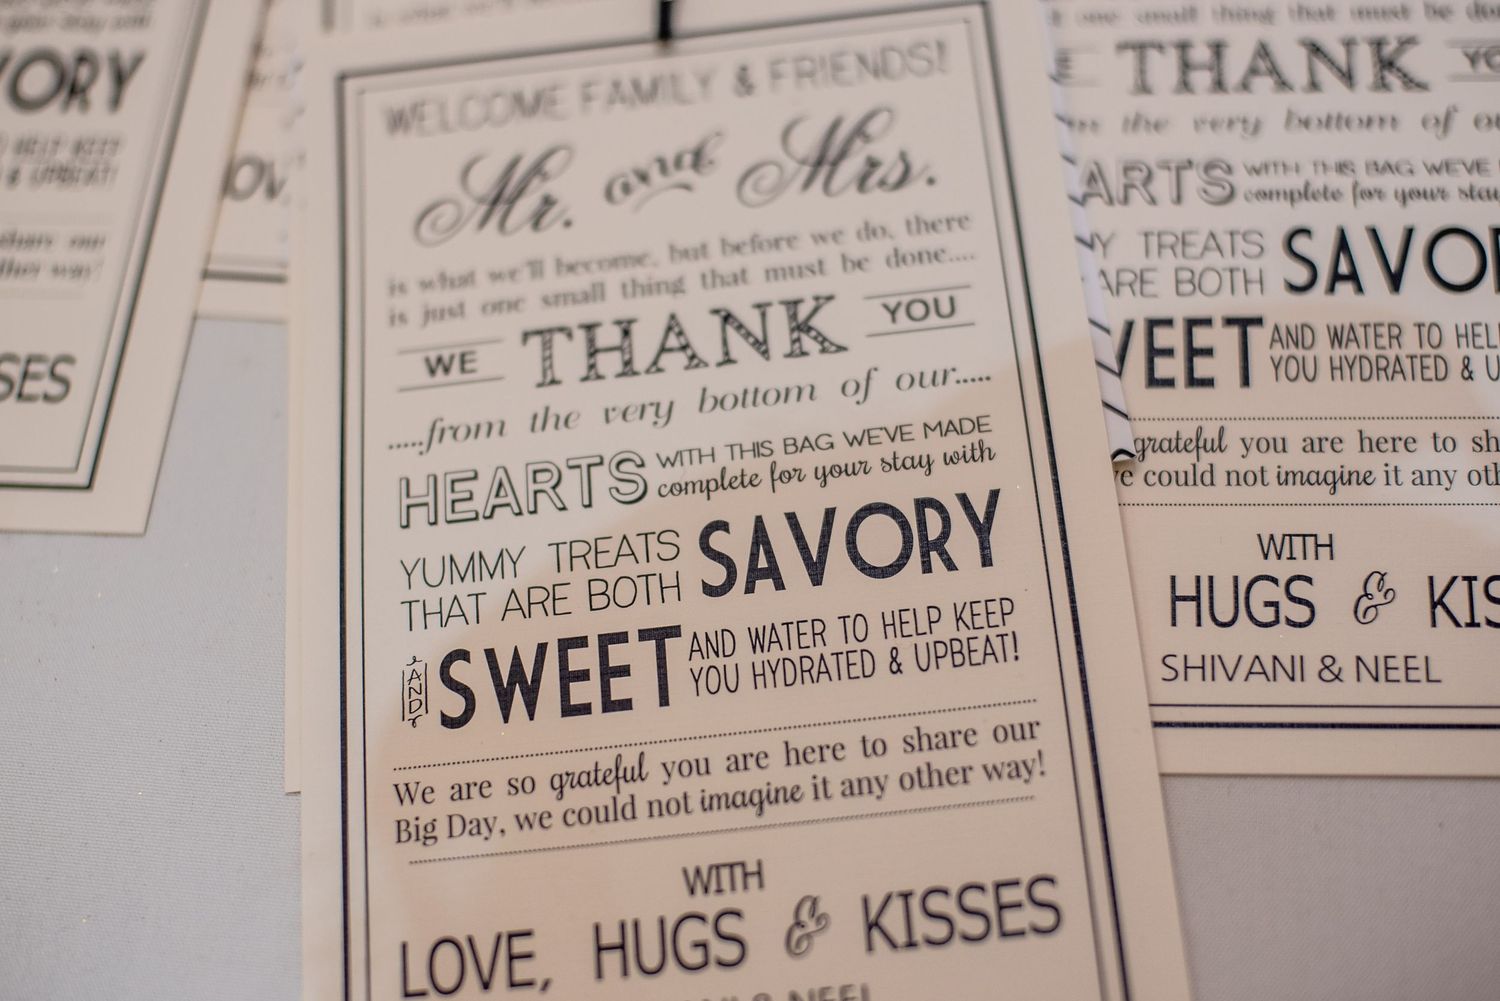 WELCOME FAMILY & FRIENDS!
Mr. and Mrs.
is what we'll become, but before we do, there
is just one small thing that must be done....
WE THANK YOU
.....from the very bottom of our.....
HEARTS WITH THIS BAG WE'VE MADE
complete for your stay with
YUMMY TREATS
THAT ARE BOTH SAVORY
AND SWEET AND WATER TO HELP KEEP
YOU HYDRATED & UPBEAT!
We are so grateful you are here to share our
Big Day, we could not imagine it any other way!
WITH
LOVE, HUGS & KISSES
& NEEL
ORY
HELP KEEP
& UPBEAT!
share our
other way!
SES
LOV
one small thing that must be
THANK
the very bottom of
ARTS WITH THIS BAG WE'VE
complete for your stay
TREATS
ARE BOTH SAVO
WEET AND WATER TO HEL
YOU HYDRATED & U
grateful you are here to sh
we could not imagine it any oth
WITH
HUGS & KIS
SHIVANI & NEEL